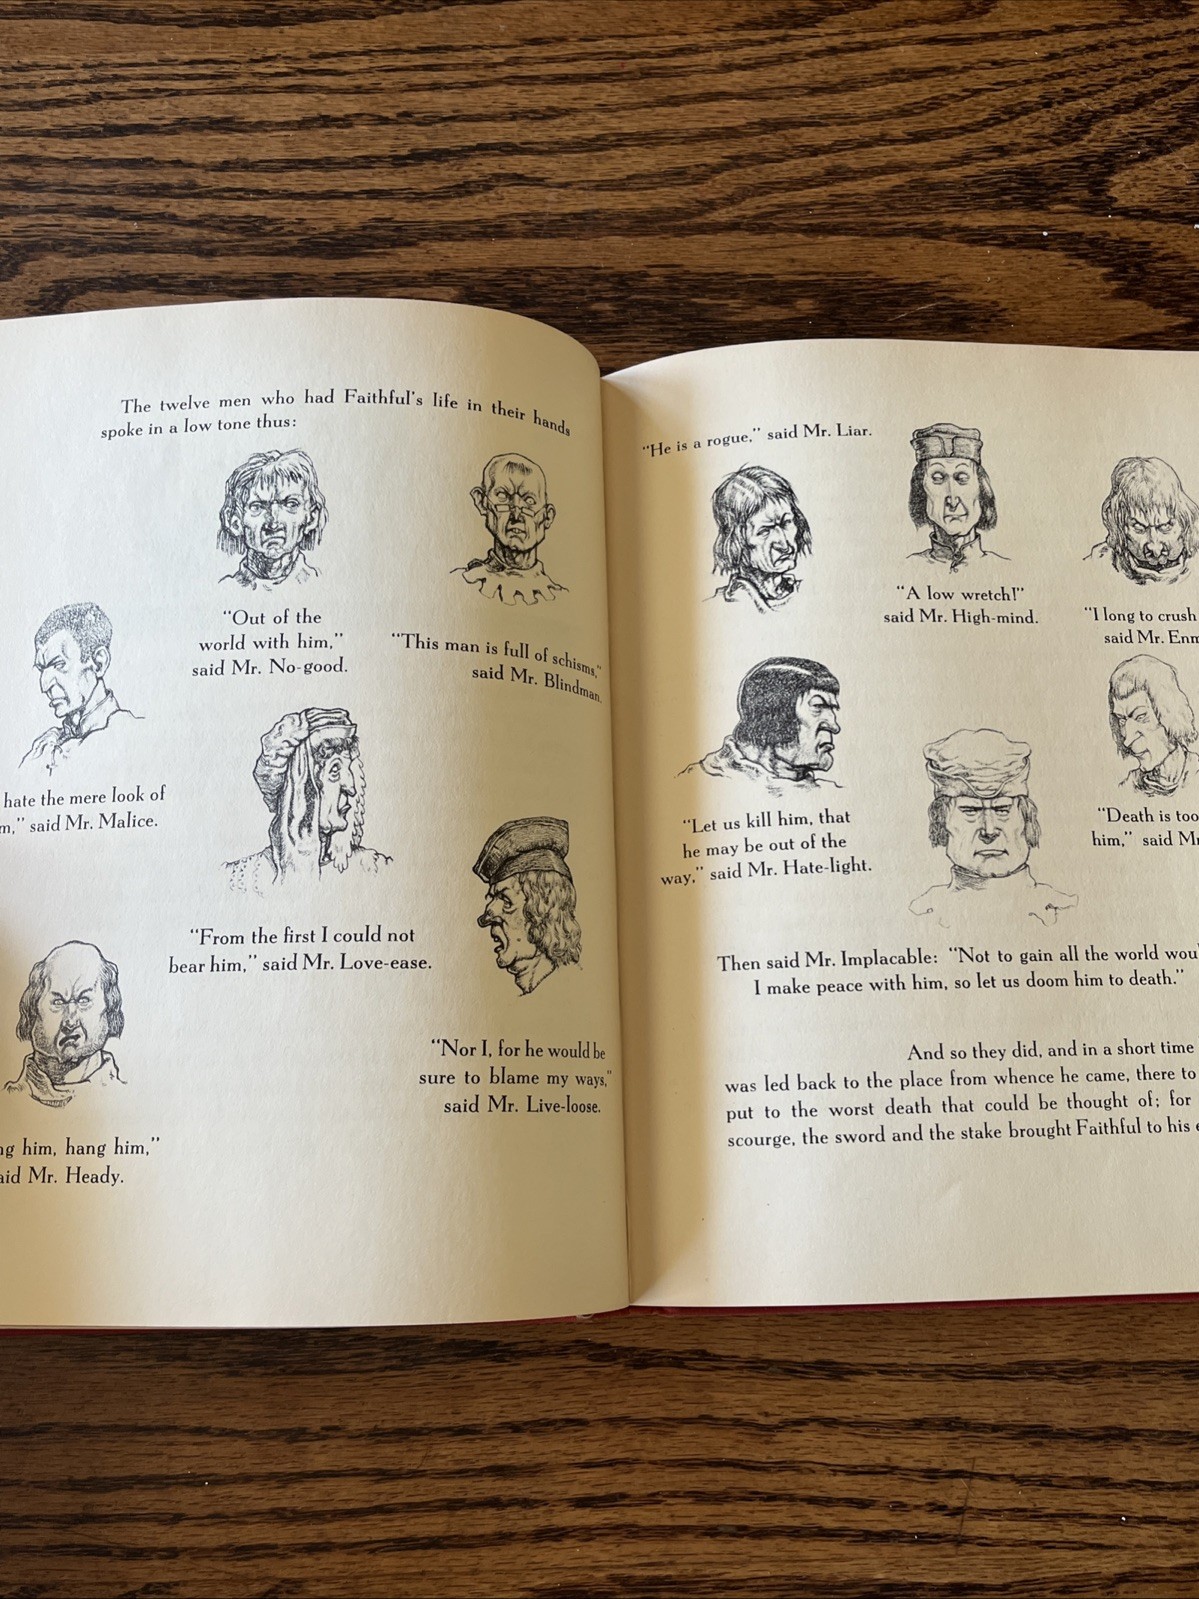 The twelve men who had Faithful's life in their hands
spoke in a low tone thus:
"Out of the
world with him,"
said Mr. No-good.
"This man is full of schisms,"
said Mr. Blindman.
hate the mere look of
said Mr. Malice.
"From the first I could not
bear him," said Mr. Love-ease.
"Nor I, for he would be
sure to blame my ways,"
said Mr. Live-loose.
him, hang him,"
Mr. Heady.
"He is a rogue," said Mr. Liar.
"A low wretch!"
said Mr. High-mind.
"I long to crush
said Mr.
"Let us kill him, that
he may be out of the
way," said Mr. Hate-light.
"Death is too
him," said
Then said Mr. Implacable: "Not to gain all the world
I make peace with him, so let us doom him to death."
And so they did, and in a short time
was led back to the place from whence he came, there to
put to the worst death that could be thought of; for
scourge, the sword and the stake brought Faithful to his